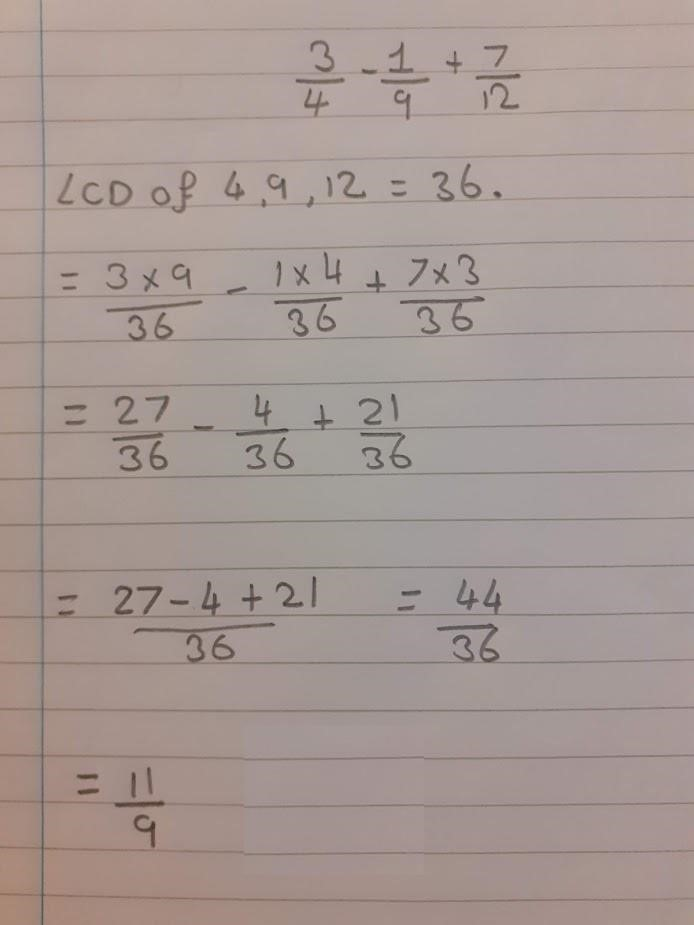 3/4 - 1/9 + 7/12
LCD of 4, 9, 12 = 36.
= 3 × 9/36 - 1 × 4/36 + 7 × 3/36
= 27/36 - 4/36 + 21/36
= 27 - 4 + 21/36 = 44/36
= 11/9